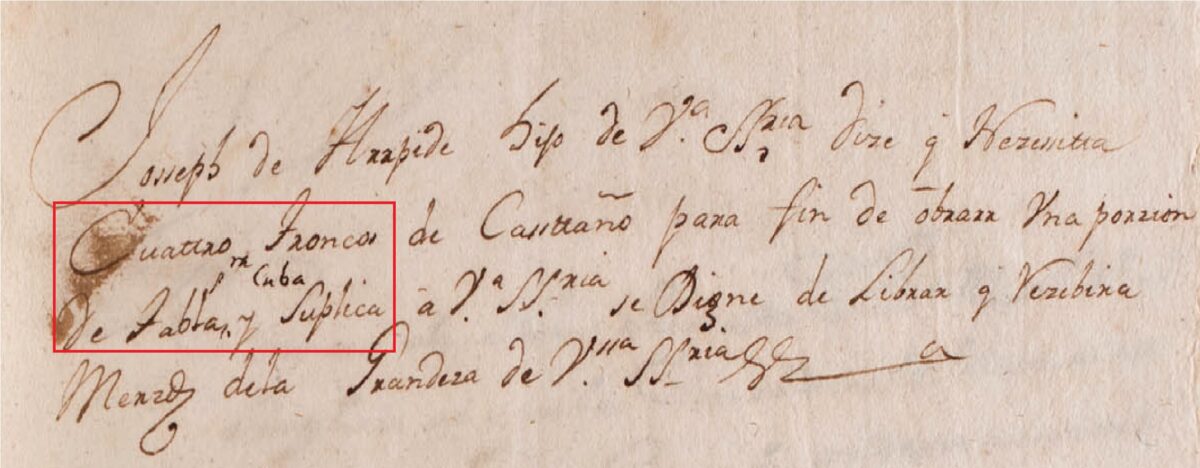 Josseph de Arrpide hijo de V.ª SSria dize q Nezesitta
Cuattro Troncos de Casttaño para fin de obrarr Vna porzion
rn Cuba
de Tablas y Suplica â V.ª SSria se Digne de Librar q Rezebira
Merzd dela Grandeza de V.ssa SSria